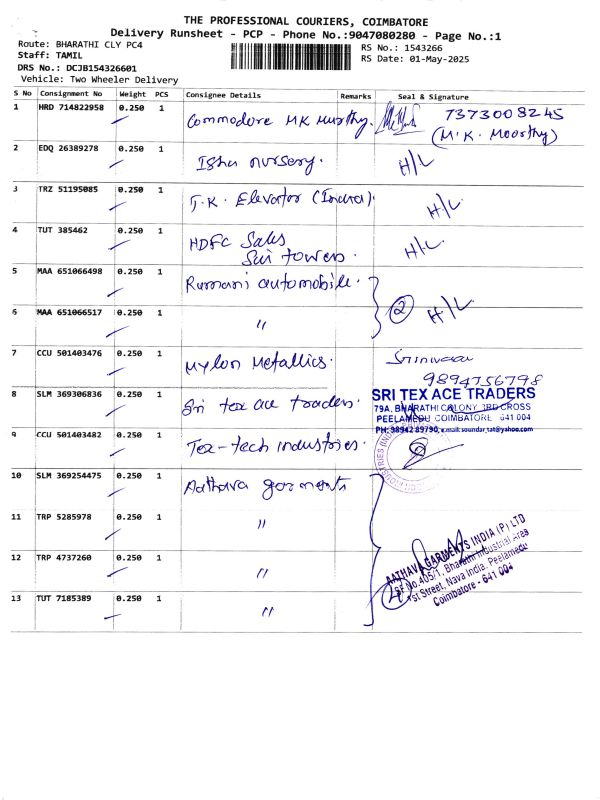 THE PROFESSIONAL COURIERS, COIMBATORE
Delivery Runsheet - PCP - Phone No.:9047080280 - Page No.:1
Route: BHARATHI CLY PC4
RS No.: 1543266
Staff: TAMIL
RS Date: 01-May-2025
DRS No.: DCJB154326601
Vehicle: Two Wheeler Delivery
S No Consignment No Weight PCS Consignee Details Remarks Seal & Signature
1 HRD 714822958 0.250 1 Commodore MK Murthy. 7373008245
(M.K. Moorthy)
2 EDQ 26389278 0.250 1 Isha nursery. H/L
3 TRZ 51195085 0.250 1 T.K. Elevator (India). H/L
4 TUT 385462 0.250 1 HDFC Sales H/L
Sri towers.
5 MAA 651066498 0.250 1 Rumani automobile.
2 H/L
6 MAA 651066517 0.250 1 "
7 CCU 501403476 0.250 1 Mylon Metallics. Srinivasan
9894756798
8 SLM 369306836 0.250 1 Sri tex ace traders. SRI TEX ACE TRADERS
79A, BHARATHI COLONY 3RD CROSS
PEELAMEDU COIMBATORE 641 004
PH: 9894289790, e.mail: soundar_tat@yahoo.com
9 CCU 501403482 0.250 1 Tex-tech industries.
10 SLM 369254475 0.250 1 Aathava garments
11 TRP 5285978 0.250 1 "
AATHAVA GARMENTS INDIA (P) LTD
SF No.405/1, Bharathi Industrial Area
1st Street, Nava India, Peelamedu
Coimbatore - 641 004
12 TRP 4737260 0.250 1 "
4
13 TUT 7185389 0.250 1 "